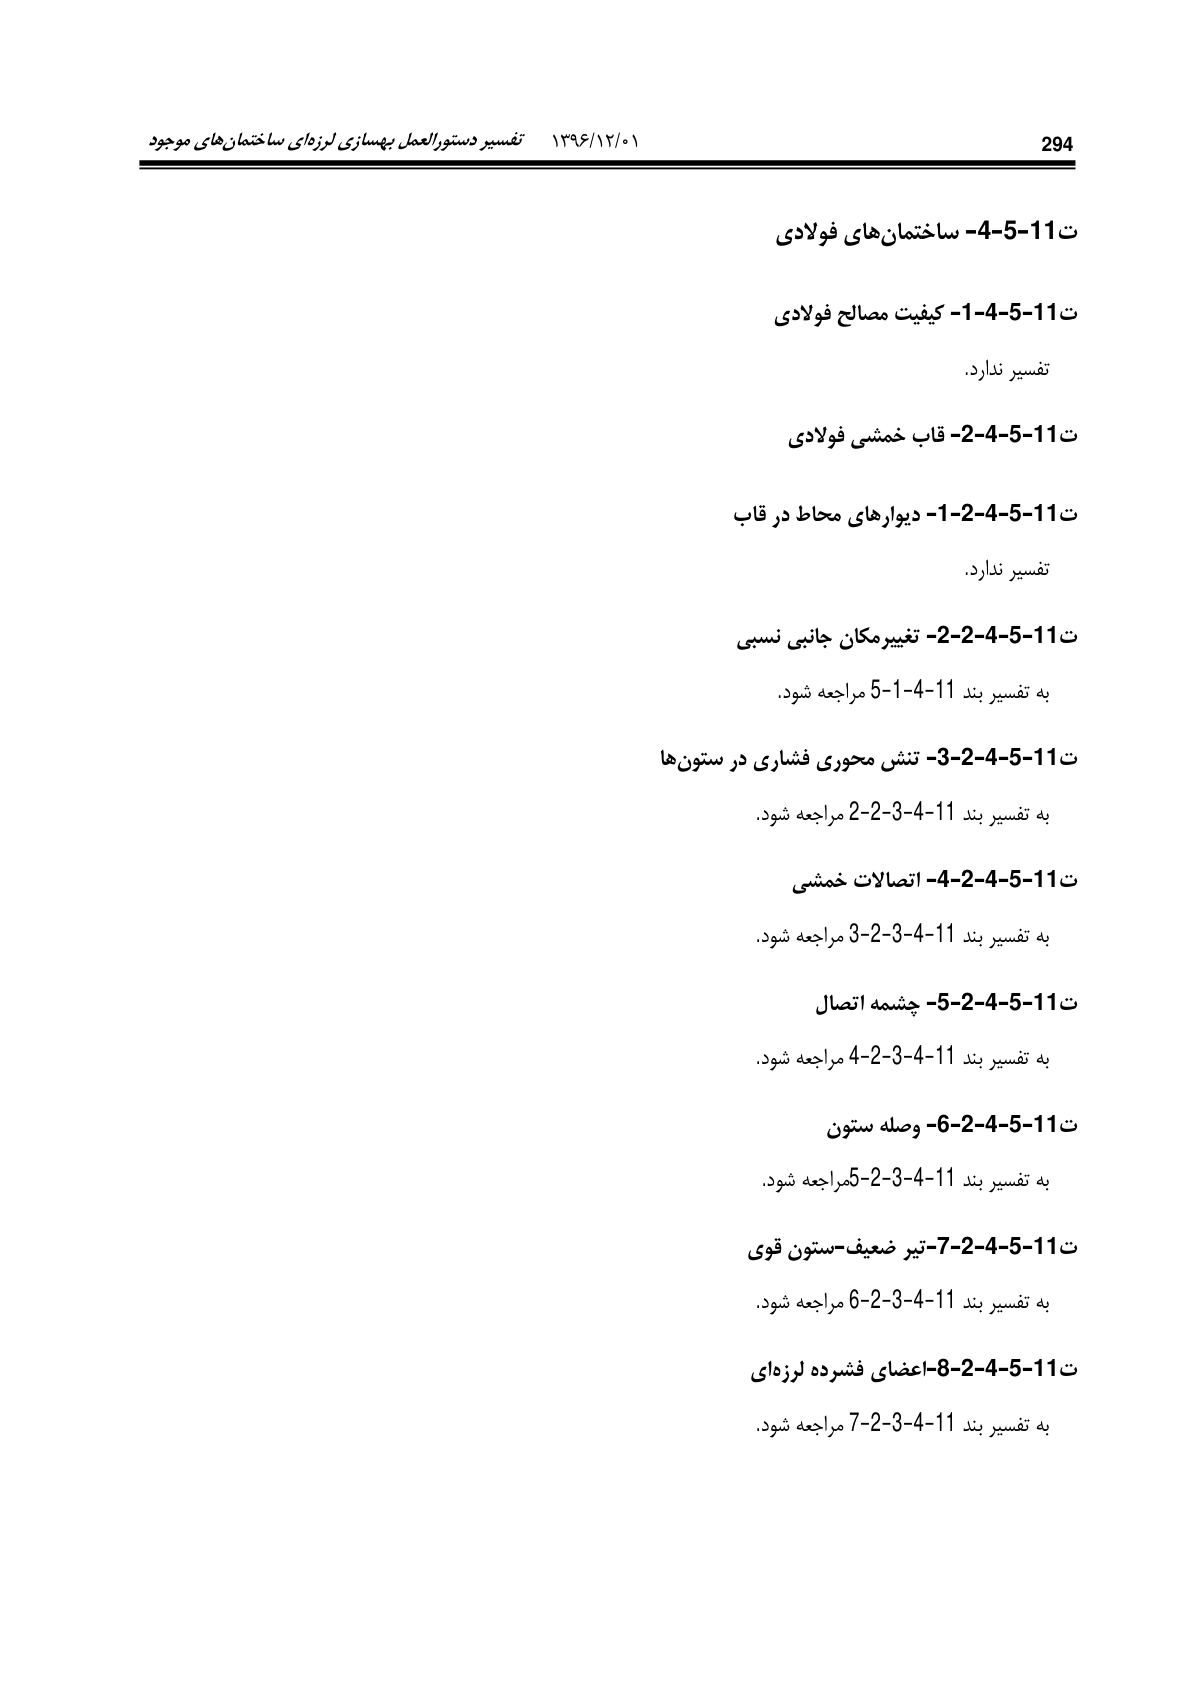 294 ۱۳۹۶/۱۲/۰۱ تفسیر دستورالعمل بهسازی لرزه‌ای ساختمان‌های موجود
ت11-5-4- ساختمان‌های فولادی
ت11-5-4-1- کیفیت مصالح فولادی
تفسیر ندارد.
ت11-5-4-2- قاب خمشی فولادی
ت11-5-4-2-1- دیوارهای محاط در قاب
تفسیر ندارد.
ت11-5-4-2-2- تغییرمکان جانبی نسبی
به تفسیر بند 11-4-1-5 مراجعه شود.
ت11-5-4-2-3- تنش محوری فشاری در ستون‌ها
به تفسیر بند 11-4-3-2-2 مراجعه شود.
ت11-5-4-2-4- اتصالات خمشی
به تفسیر بند 11-4-3-2-3 مراجعه شود.
ت11-5-4-2-5- چشمه اتصال
به تفسیر بند 11-4-3-2-4 مراجعه شود.
ت11-5-4-2-6- وصله ستون
به تفسیر بند 11-4-3-2-5مراجعه شود.
ت11-5-4-2-7-تیر ضعیف-ستون قوی
به تفسیر بند 11-4-3-2-6 مراجعه شود.
ت11-5-4-2-8-اعضای فشرده لرزه‌ای
به تفسیر بند 11-4-3-2-7 مراجعه شود.